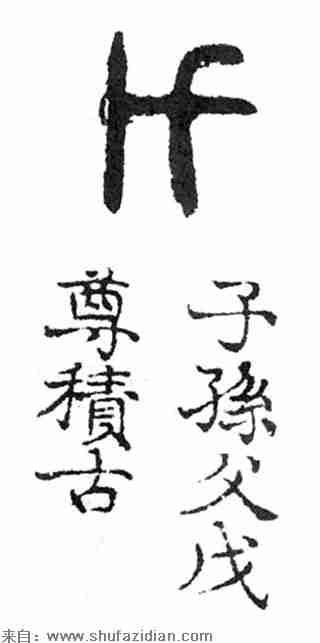 子孫父戊
尊積古
来自：www.shufazidian.com